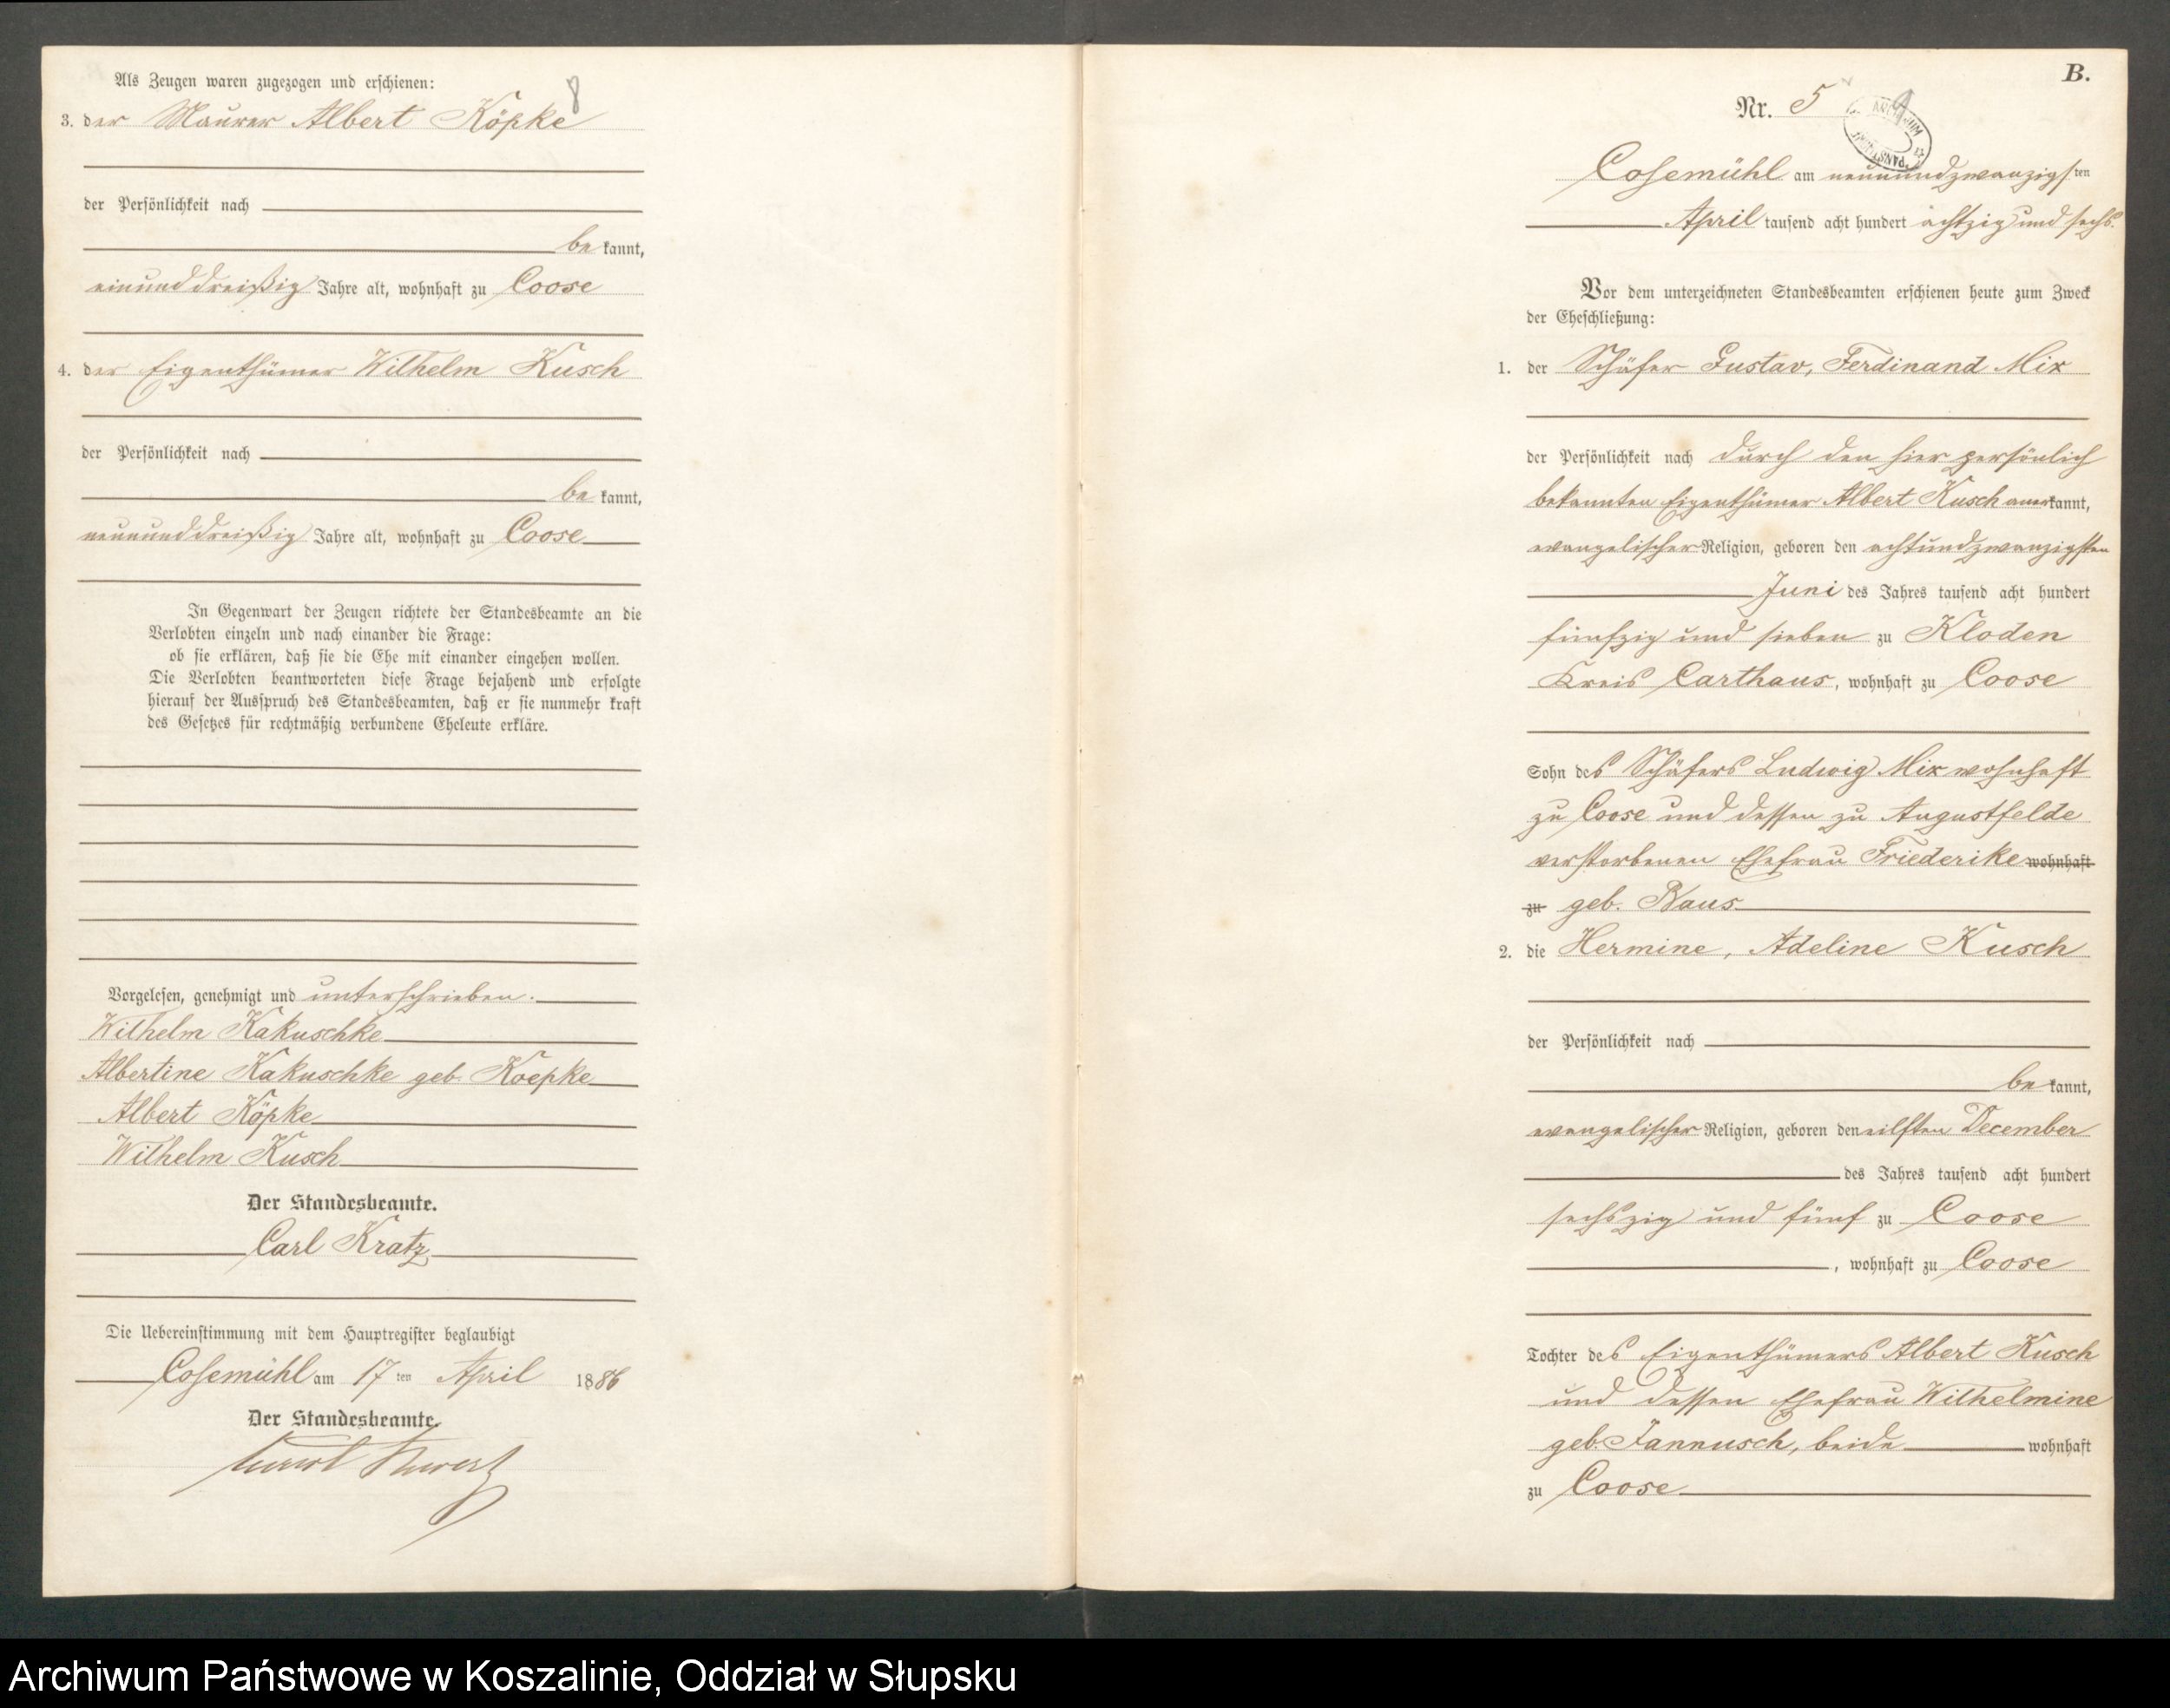 Als Zeugen waren zugezogen und erschienen:
8
3. der Maurer Albert Köpke
der Persönlichkeit nach
be kannt,
einunddreißig Jahre alt, wohnhaft zu Coose
4. der Eigenthümer Wilhelm Kusch
der Persönlichkeit nach
be kannt,
neununddreißig Jahre alt, wohnhaft zu Coose
In Gegenwart der Zeugen richtete der Standesbeamte an die
Verlobten einzeln und nach einander die Frage:
ob sie erklären, daß sie die Ehe mit einander eingehen wollen.
Die Verlobten beantworteten diese Frage bejahend und erfolgte
hierauf der Ausspruch des Standesbeamten, daß er sie nunmehr kraft
des Gesetzes für rechtmäßig verbundene Eheleute erkläre.
Vorgelesen, genehmigt und unterschrieben.
Wilhelm Kakuschke
Albertine Kakuschke geb. Koepke
Albert Köpke
Wilhelm Kusch
Der Standesbeamte.
Carl Kratz
Die Uebereinstimmung mit dem Hauptregister beglaubigt
Cosemühl am 17 ten April 1886
Der Standesbeamte.
B.
Nr. 5
Cosemühl am neunundzwanzigsten
April tausend acht hundert achtzig und sechs.
Vor dem unterzeichneten Standesbeamten erschienen heute zum Zweck
der Eheschließung:
1. der Schäfer Gustav, Ferdinand Mix
der Persönlichkeit nach durch den hier persönlich
bekannten Eigenthümer Albert Kusch anerkannt,
evangelischer Religion, geboren den achtundzwanzigsten
Juni des Jahres tausend acht hundert
fünfzig und sieben zu Kloden
Kreis Carthaus, wohnhaft zu Coose
Sohn des Schäfers Ludwig Mix wohnhaft
zu Coose und dessen zu Augustfelde
verstorbenen Ehefrau Friederike wohnhaft
zu geb. Naus
2. die Hermine, Adeline Kusch
der Persönlichkeit nach
be kannt,
evangelischer Religion, geboren den eilften December
des Jahres tausend acht hundert
sechszig und fünf zu Coose
, wohnhaft zu Coose
Tochter des Eigenthümers Albert Kusch
und dessen Ehefrau Wilhelmine
geb. Jannusch, beide wohnhaft
zu Coose
Archiwum Państwowe w Koszalinie, Oddział w Słupsku